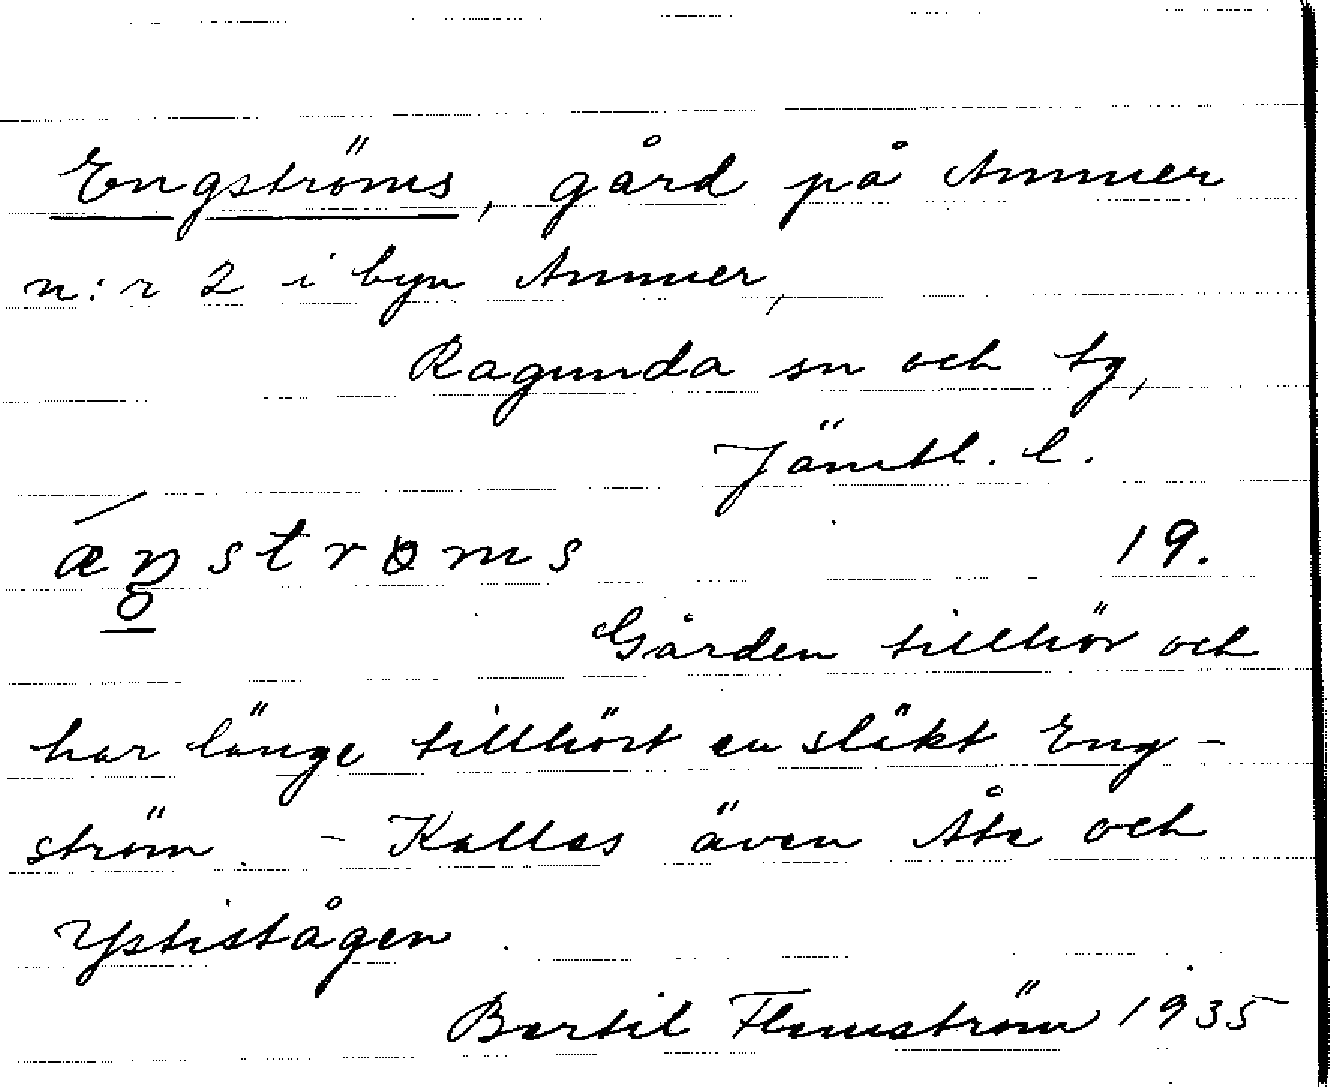 Engströms, gård på Ammer
n:r 2 i byn Ammer,
Ragunda sn och tg,
Jämtl. l.
ǽŋströms 19.
Gården tillhör och
har länge tillhört en släkt Eng-
ström. - Kallas även Åte och
Ystistågen.
Bertil Flemström 1935